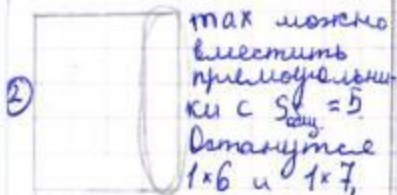 max можно
вместить
② прямоугольни-
ки с Sобщ. = 5.
Останутся
1×6 и 1×7,